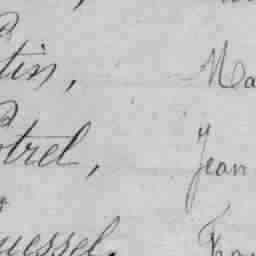 tin, Ma
otrel, Jean
uessel, Fran